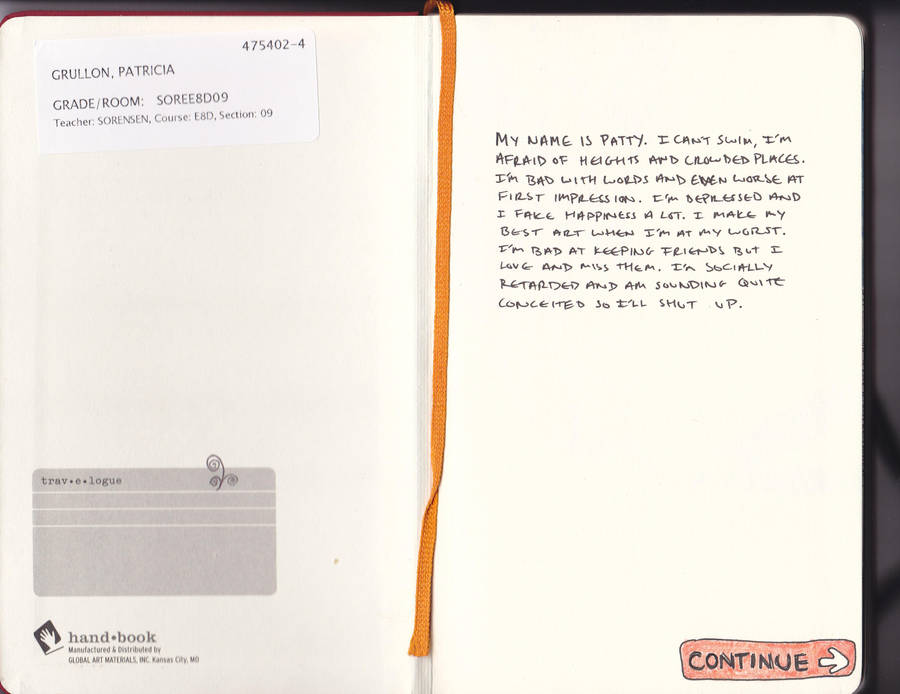 475402-4
GRULLON, PATRICIA
GRADE/ROOM: SOREE8D09
Teacher: SORENSEN, Course: E8D, Section: 09
trav•e•logue
hand•book
Manufactured & Distributed by
GLOBAL ART MATERIALS, INC. Kansas City, MO
MY NAME IS PATTY. I CAN'T SWIM, I'M
AFRAID OF HEIGHTS AND CROWDED PLACES.
I'M BAD WITH WORDS AND EVEN WORSE AT
FIRST IMPRESSION. I'M DEPRESSED AND
I FAKE HAPPINESS A LOT. I MAKE MY
BEST ART WHEN I'M AT MY WORST.
I'M BAD AT KEEPING FRIENDS BUT I
LOVE AND MISS THEM. I'M SOCIALLY
RETARDED AND AM SOUNDING QUITE
CONCEITED SO I'LL SHUT UP.
CONTINUE